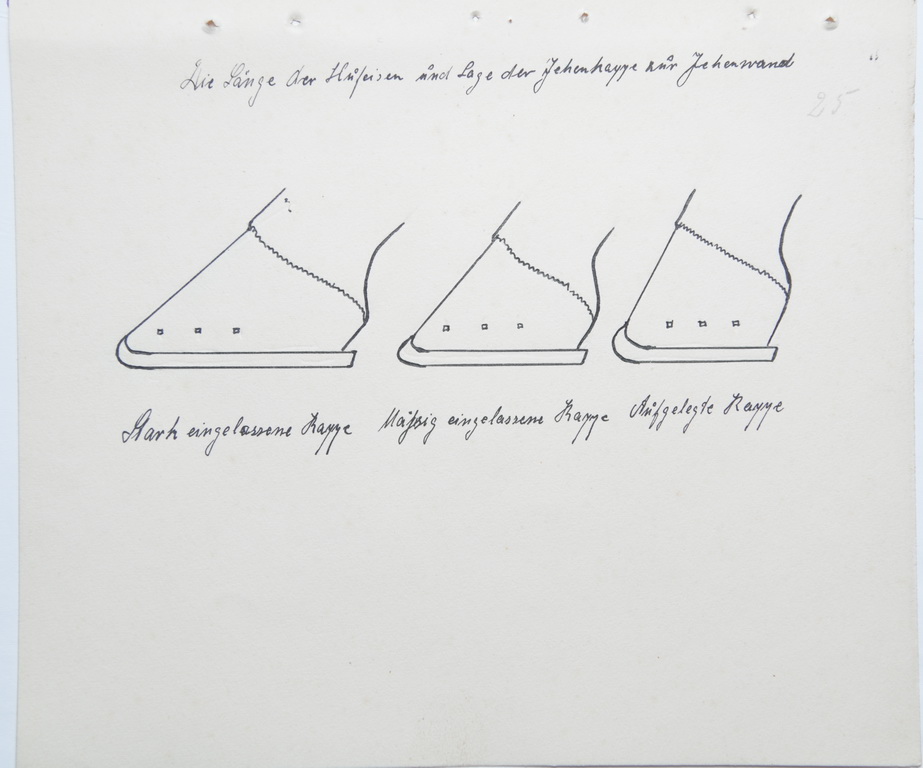 Die Länge der Hufeisen und Lage der Zehenkappe zur Zehenwand
25
Stark eingelassene Kappe
Mäßig eingelassene Kappe
Aufgelegte Kappe